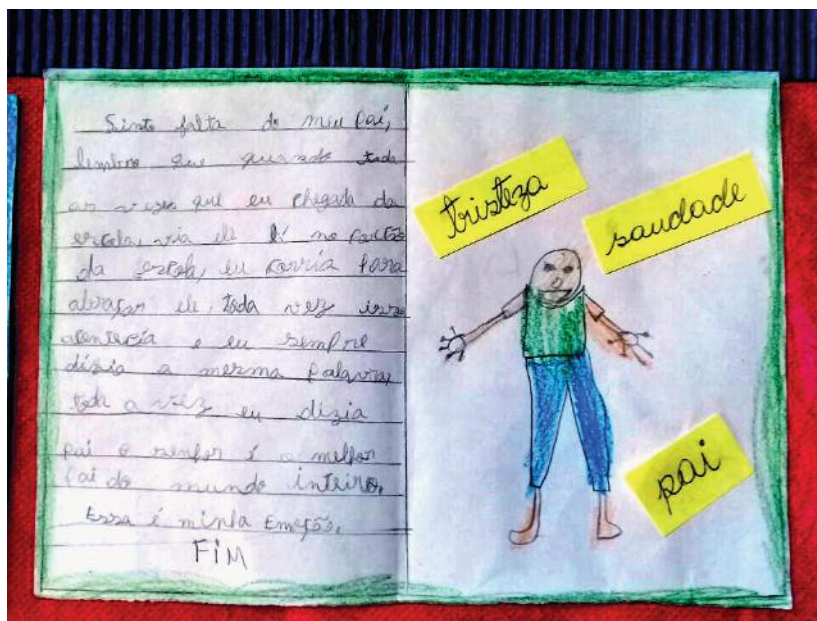 Sinto falta do meu Pai,
lembro que quando toda
as vezes que eu chegada da
escola, via ele lí no portão
da escola, eu corria para
abraçar ele, toda vez isso
acontecia e eu sempre
dizia a mesma palavra,
toda vez eu dizia
pai o senhor é o melhor
Pai do mundo inteiro,
Essa é minha Emoção.
FIM
tristeza
saudade
pai